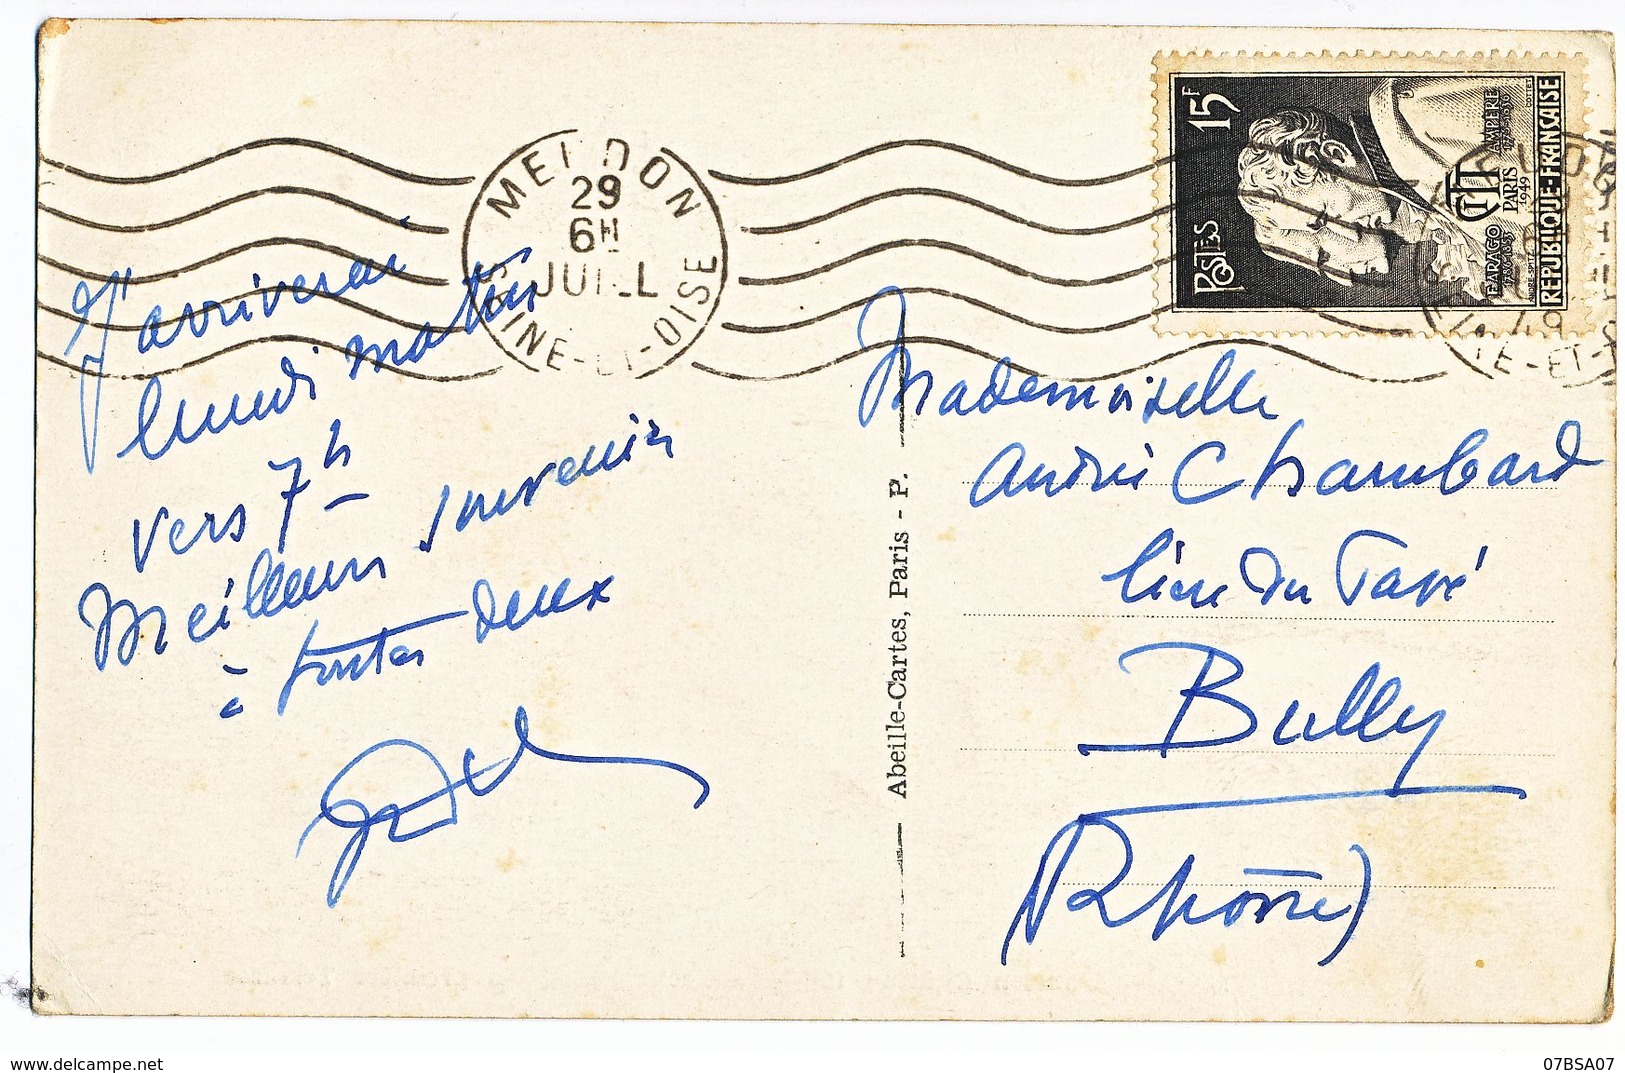 MEUDON
29
6H
JUILL
SEINE-ET-OISE
15F
POSTES
F.ARAGO
1786-1853
AMPERE
1775-1836
CITT
PARIS
1949
REPUBLIQUE-FRANÇAISE
J'arriverai
lundi matin
vers 7h
Meilleurs souvenirs
à toutes deux
Abeille-Cartes, Paris - P.
Mademoiselle
André Chambard
lieu du Tapé
Bully
(Rhône)
delcampe.net
07BSA07